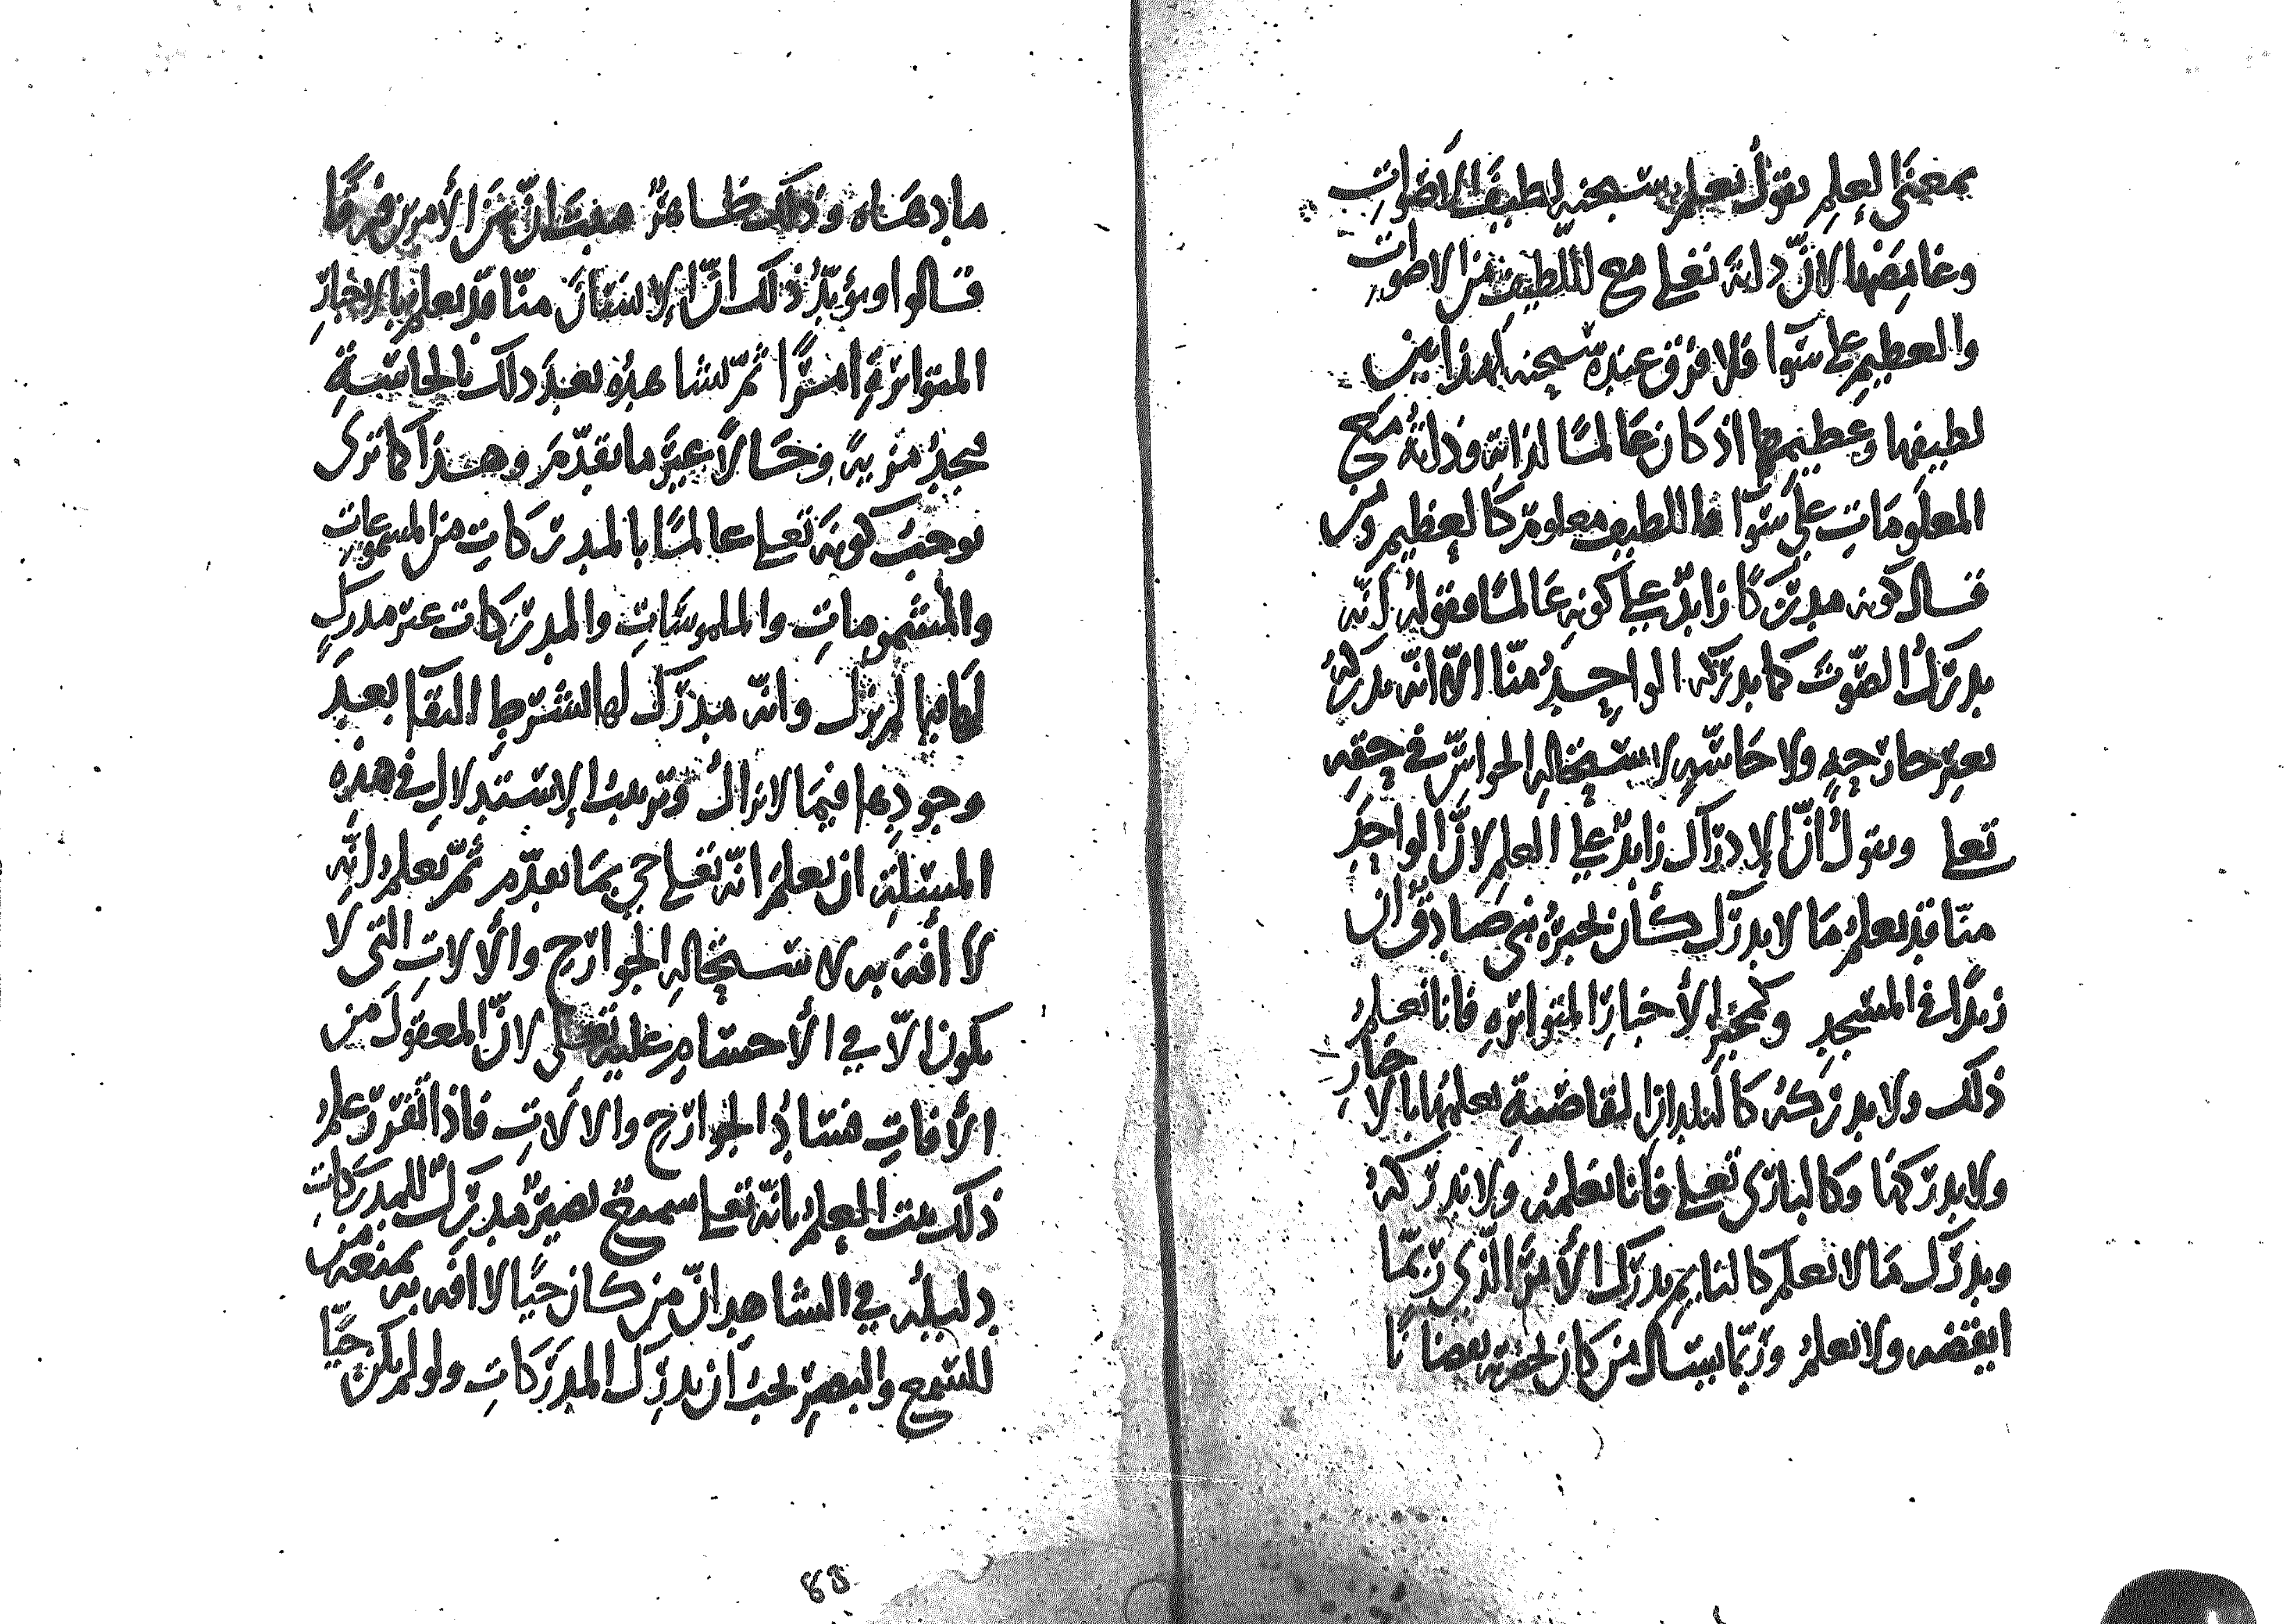 بمعنى العلم يقول يعلم سبحنه لطيف الأصوات
وغامضها لانّ ذاته تعلى مع اللطيف من الاصوات
والعظيم على سوآ فلا فرق عنده سبحنه
لطيفها وعظيمها اذ كان عالمًا لذاته وذاته مع
المعلومات على سوآ فاللطيف معلوم كالعظيم ومن
قال كونه مدركًا زايدٌ على كونه عالمًا فقوله انّه
يدرك الصّوت كما يدركه الواحد منّا الا انّه يدركه
بغير جارحةٍ ولا حاسّةٍ لاستحالة الحواسّ في حقه
تعلى ويقول انّ الإدراك زايدٌ على العلم لانّ الواحد
منّا قد يعلم ما لا يدرك كأن يخبره نبي صادق ان
زيدًا في المسجد وكمخبر الأخبار المتواتره فانا نعلم
ذلك ولا ندركه كالبلدان القاصية نعلمها بالاخبار
ولا ندركها وكالباري تعلى فانا نعلمه ولا ندركه
ويدرك ما لا نعلم كالنايم يدرك الأمر الّذي ربّما
ايقضه ولا يعلم وربّما يسال من كان بحضرته يقضانًا
ما دهاه وذلك ظاهرٌ فبان انّ بين الأمرين فرقًا
قالوا ويؤيّد ذلك انّ الإنسان منّا قد يعلم بالاخبار
المتواترة امرًا ثمّ يشاهده بعد ذلك بالحاسّة
فيجد مزيةً وحالاً غير ما تقدّم وهذا كما ترى
يوجب كونه تعلى عالمًا بالمدركات من المسموعات
والمشمومات والملموسات والمدركات غير مدركٍ
لها فيما لم يزل وانّه مدرك لها بشرط البقآ بعد
وجودها فيما لا يزال وترتيب الإستدلال في هذه
المسئلة ان يعلم انّه تعلى حي بما تقدّم ثمّ يعلم انّه
لا أفة به لاستحالة الجوارح والألات التي لا
يكون الّا في الأجسام عليه تعلى لانّ المعقول من
الأفات فساد الجوارح والالات فاذا تقرّر علم
ذلك ثبت العلم بانّه تعلى سميعٌ بصيرٌ مدركٌ للمدركات
دليله في الشاهد انّ من كان حيًّا لا افة به تمنعه من
السمع والبصر يجب ان يدرك المدركات ولو لم يكن حيًّا
82